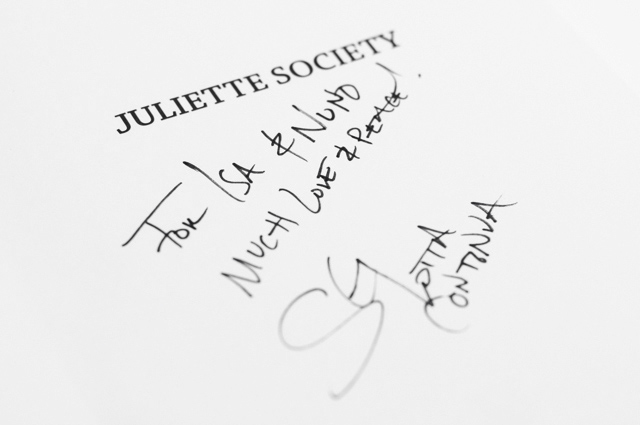 JULIETTE SOCIETY
FOR ISA & NUNO
MUCH LOVE & PEACE!
SG
LOTTA
CONTINUA